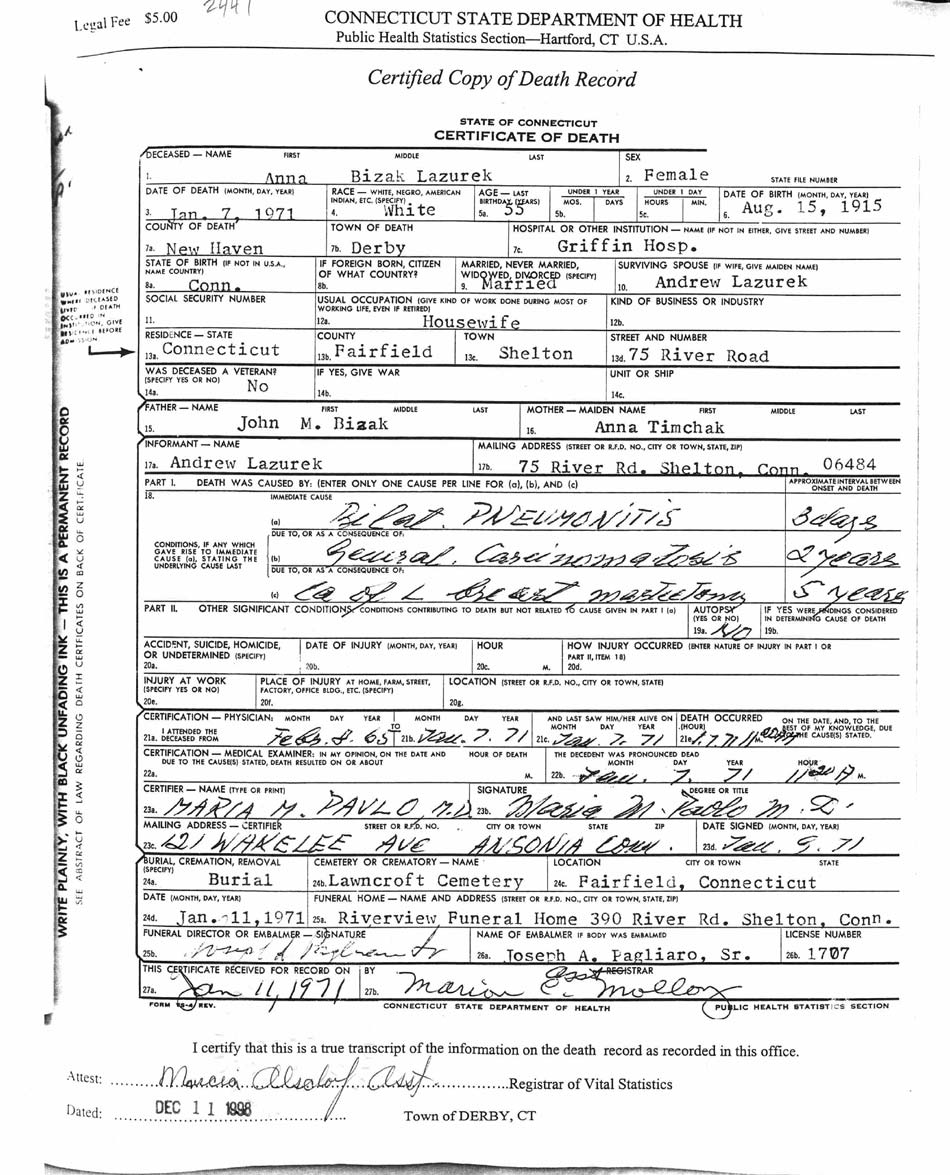 2441
Legal Fee $5.00
CONNECTICUT STATE DEPARTMENT OF HEALTH
Public Health Statistics Section—Hartford, CT U.S.A.
Certified Copy of Death Record
STATE OF CONNECTICUT
CERTIFICATE OF DEATH
DECEASED — NAME FIRST MIDDLE LAST SEX STATE FILE NUMBER
1. Anna Bizak Lazurek 2. Female
DATE OF DEATH (MONTH, DAY, YEAR) RACE — WHITE, NEGRO, AMERICAN INDIAN, ETC. (SPECIFY) AGE — LAST BIRTHDAY (YEARS) UNDER 1 YEAR MOS. DAYS UNDER 1 DAY HOURS MIN. DATE OF BIRTH (MONTH, DAY, YEAR)
3. Jan. 7, 1971 4. White 5a. 55 5b. 5c. 6. Aug. 15, 1915
COUNTY OF DEATH TOWN OF DEATH HOSPITAL OR OTHER INSTITUTION — NAME (IF NOT IN EITHER, GIVE STREET AND NUMBER)
7a. New Haven 7b. Derby 7c. Griffin Hosp.
STATE OF BIRTH (IF NOT IN U.S.A., NAME COUNTRY) IF FOREIGN BORN, CITIZEN OF WHAT COUNTRY? MARRIED, NEVER MARRIED, WIDOWED, DIVORCED (SPECIFY) SURVIVING SPOUSE (IF WIFE, GIVE MAIDEN NAME)
8a. Conn. 8b. 9. Married 10. Andrew Lazurek
SOCIAL SECURITY NUMBER USUAL OCCUPATION (GIVE KIND OF WORK DONE DURING MOST OF WORKING LIFE, EVEN IF RETIRED) KIND OF BUSINESS OR INDUSTRY
11. 12a. Housewife 12b.
USUAL RESIDENCE WHERE DECEASED LIVED IF DEATH OCCURRED IN INSTITUTION, GIVE RESIDENCE BEFORE ADMISSION
RESIDENCE — STATE COUNTY TOWN STREET AND NUMBER
13a. Connecticut 13b. Fairfield 13c. Shelton 13d. 75 River Road
WAS DECEASED A VETERAN? (SPECIFY YES OR NO) IF YES, GIVE WAR UNIT OR SHIP
14a. No 14b. 14c.
FATHER — NAME FIRST MIDDLE LAST MOTHER — MAIDEN NAME FIRST MIDDLE LAST
15. John M. Bizak 16. Anna Timchak
INFORMANT — NAME MAILING ADDRESS (STREET OR R.F.D. NO., CITY OR TOWN, STATE, ZIP)
17a. Andrew Lazurek 17b. 75 River Rd. Shelton, Conn. 06484
PART I. DEATH WAS CAUSED BY: (ENTER ONLY ONE CAUSE PER LINE FOR (a), (b), AND (c) APPROXIMATE INTERVAL BETWEEN ONSET AND DEATH
18. IMMEDIATE CAUSE
(a) Bilat. PNEUMONITIS 3 days
DUE TO, OR AS A CONSEQUENCE OF:
CONDITIONS, IF ANY WHICH GAVE RISE TO IMMEDIATE CAUSE (a), STATING THE UNDERLYING CAUSE LAST
(b) General. Carcinomatosis 2 years
DUE TO, OR AS A CONSEQUENCE OF:
(c) Ca of L breast mastectomy 5 years
PART II. OTHER SIGNIFICANT CONDITIONS, CONDITIONS CONTRIBUTING TO DEATH BUT NOT RELATED TO CAUSE GIVEN IN PART I (a) AUTOPSY (YES OR NO) IF YES WERE FINDINGS CONSIDERED IN DETERMINING CAUSE OF DEATH
19a. NO 19b.
ACCIDENT, SUICIDE, HOMICIDE, OR UNDETERMINED (SPECIFY) DATE OF INJURY (MONTH, DAY, YEAR) HOUR HOW INJURY OCCURRED (ENTER NATURE OF INJURY IN PART I OR PART II, ITEM 18)
20a. 20b. 20c. M. 20d.
INJURY AT WORK (SPECIFY YES OR NO) PLACE OF INJURY AT HOME, FARM, STREET, FACTORY, OFFICE BLDG., ETC. (SPECIFY) LOCATION (STREET OR R.F.D. NO., CITY OR TOWN, STATE)
20e. 20f. 20g.
CERTIFICATION — PHYSICIAN: MONTH DAY YEAR TO MONTH DAY YEAR AND LAST SAW HIM/HER ALIVE ON MONTH DAY YEAR DEATH OCCURRED (HOUR) ON THE DATE, AND, TO THE BEST OF MY KNOWLEDGE, DUE TO THE CAUSE(S) STATED.
21a. I ATTENDED THE DECEASED FROM Feb. 8. 65 21b. Jan. 7. 71 21c. Jan. 7. 71 21e. M.
CERTIFICATION — MEDICAL EXAMINER: IN MY OPINION, ON THE DATE AND DUE TO THE CAUSE(S) STATED, DEATH RESULTED ON OR ABOUT HOUR OF DEATH THE DECEDENT WAS PRONOUNCED DEAD MONTH DAY YEAR HOUR
22a. M. 22b. Jan. 7. 71 M.
CERTIFIER — NAME (TYPE OR PRINT) SIGNATURE DEGREE OR TITLE
23a. MARIA M. PAVLO, M.D. 23b. Maria M. Pavlo M.D.
MAILING ADDRESS — CERTIFIER STREET OR R.F.D. NO. CITY OR TOWN STATE ZIP DATE SIGNED (MONTH, DAY, YEAR)
23c. 121 WAKELEE AVE ANSONIA CONN. 23d. Jan. 9. 71
BURIAL, CREMATION, REMOVAL (SPECIFY) CEMETERY OR CREMATORY — NAME LOCATION CITY OR TOWN STATE
24a. Burial 24b. Lawncroft Cemetery 24c. Fairfield, Connecticut
DATE (MONTH, DAY, YEAR) FUNERAL HOME — NAME AND ADDRESS (STREET OR R.F.D. NO., CITY OR TOWN, STATE, ZIP)
24d. Jan. 11, 1971 25a. Riverview Funeral Home 390 River Rd. Shelton, Conn.
FUNERAL DIRECTOR OR EMBALMER — SIGNATURE NAME OF EMBALMER IF BODY WAS EMBALMED LICENSE NUMBER
25b. 26a. Joseph A. Pagliaro, Sr. 26b. 1707
THIS CERTIFICATE RECEIVED FOR RECORD ON BY Asst REGISTRAR
27a. Jan 11, 1971 27b. Marion E. Molloy
FORM VS-4 REV. CONNECTICUT STATE DEPARTMENT OF HEALTH PUBLIC HEALTH STATISTICS SECTION
WRITE PLAINLY, WITH BLACK UNFADING INK — THIS IS A PERMANENT RECORD
SEE ABSTRACT OF LAW REGARDING DEATH CERTIFICATES ON BACK OF CERTIFICATE
I certify that this is a true transcript of the information on the death record as recorded in this office.
Attest: Marcia Asst. Registrar of Vital Statistics
Dated: DEC 11 1998 Town of DERBY, CT